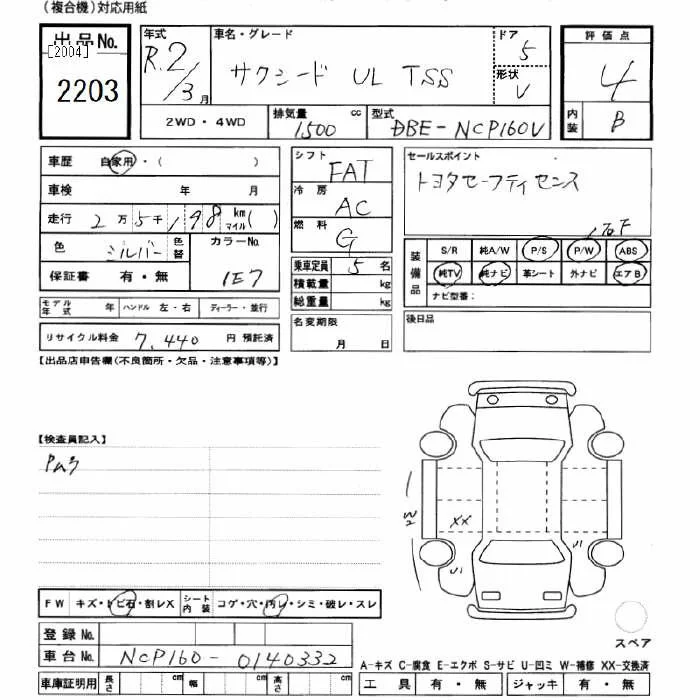 (複合機)対応用紙
出品No.
[2004]
2203
年式 R.2/3月
車名・グレード
サクシード UL TSS
ドア 5
形状 V
評価点
4
内装 B
2WD・4WD
排気量 1500 cc
型式 DBE-NCP160V
車歴 自家用・( )
車検 年 月
走行 2万5千198 km マイル( )
色 シルバー 色替 カラーNo. 1E7
保証書 有・無
シフト FAT
冷房 AC
燃料 G
乗車定員 5名
積載量 kg
総重量 kg
セールスポイント
トヨタセーフティセンス
装備品
S/R 純A/W P/S P/W ABS
純TV 純ナビ 革シート 外ナビ エアB
ナビ型番:
モデル年式 年 ハンドル 左・右 ディーラー・並行
リサイクル料金 7,440 円 預託済
名変期限
月 日
後日品
【出品店申告欄(不良箇所・欠品・注意事項等)】
【検査員記入】
XX
FW キズ・トビ石・割レX シート内装 コゲ・穴・汚レ・シミ・破レ・スレ
登録No.
車台No. NCP160-0140332
スペア
A-キズ C-腐食 E-エクボ S-サビ U-凹ミ W-補修 XX-交換済
車庫証明用 長さ cm 幅 cm 高さ cm
工具 有・無 ジャッキ 有・無